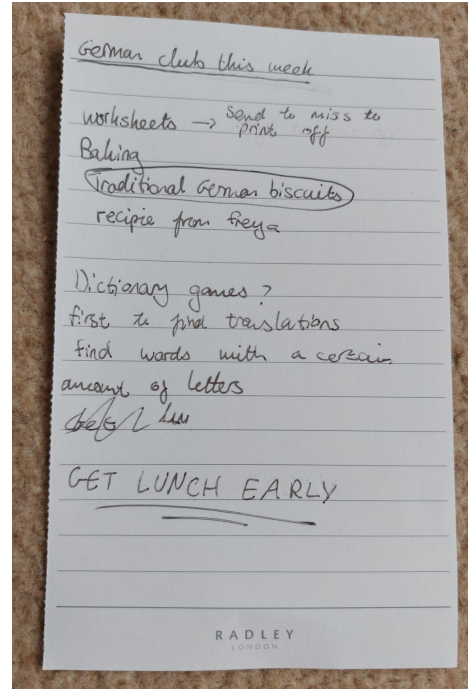 German club this week
worksheets → Send to miss to
print off
Baking
Traditional German biscuits
recipie from freya
Dictionary games?
first to find translations
find words with a certain
amount of letters
GET LUNCH EARLY
RADLEY
LONDON